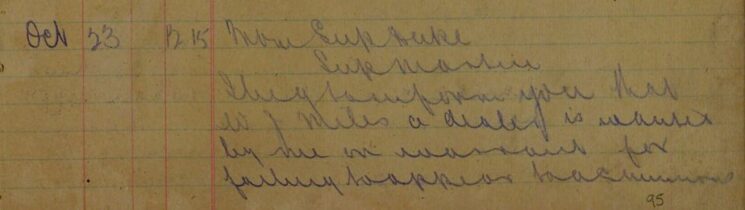 Oct 23 12 15 From Supt Duke
Supt Martin
I beg to inform you that
W J Miles a dealer is wanted
by me on warrant for
failing to appear to a summons
95